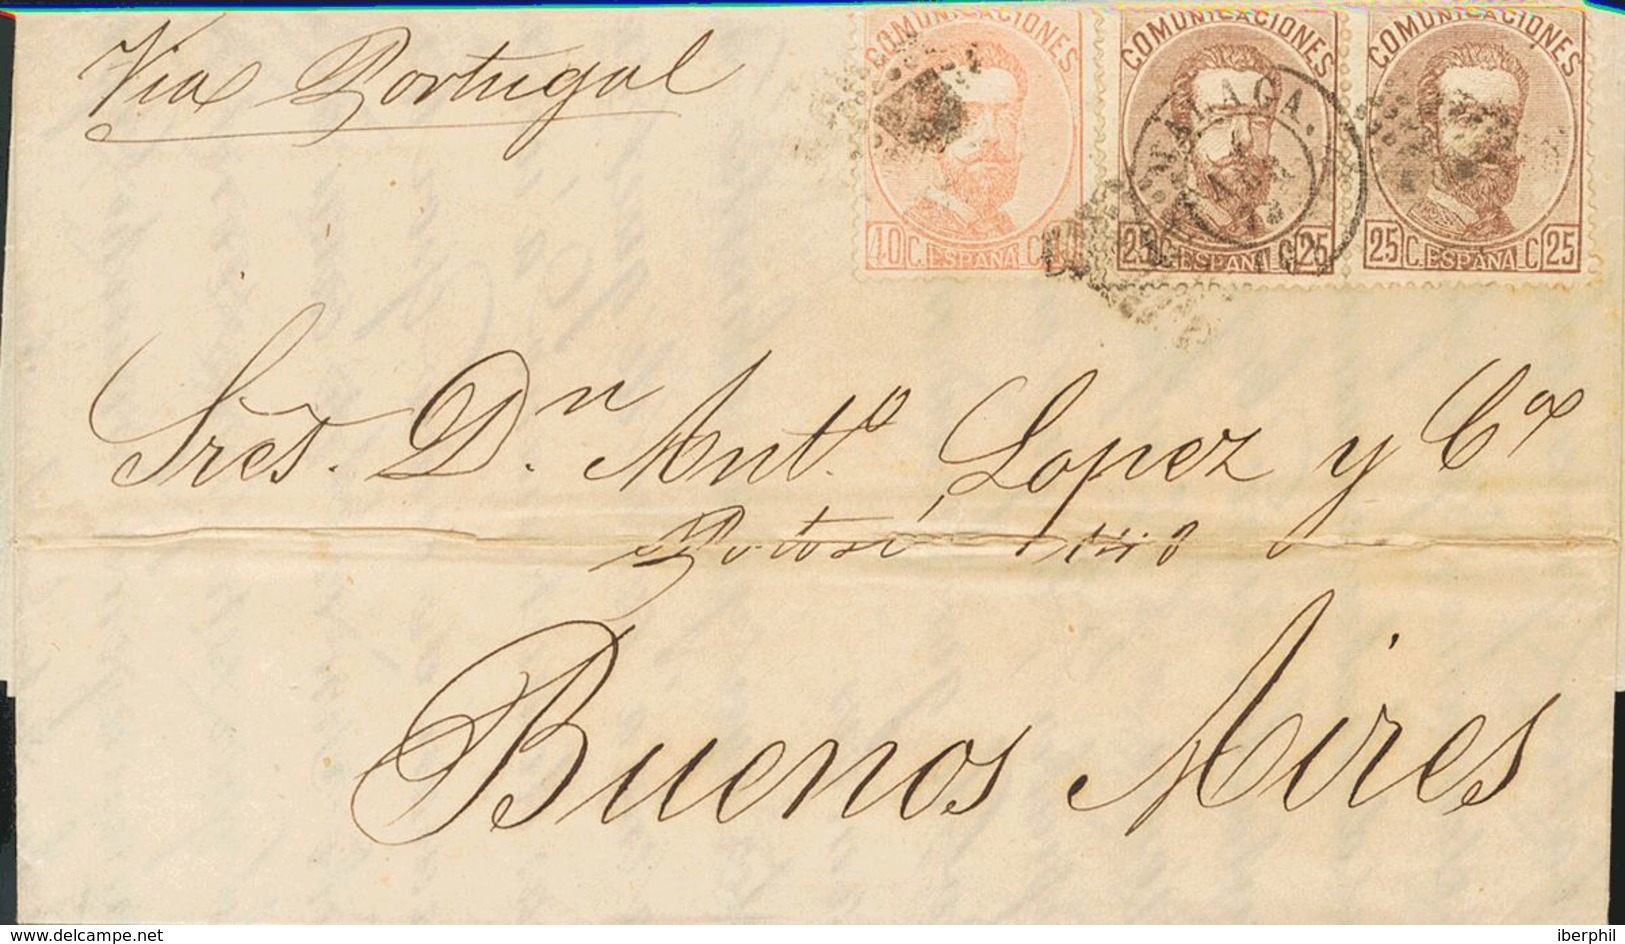 Via Portugal
COMUNICACIONES COMUNICACIONES COMUNICACIONES
MALAGA.
40 C. ESPAÑA C. 25 C. ESPAÑA C. 25 25 C. ESPAÑA C. 25
Sres. Dn. Anto. Lopez y Ca
Potosi
Buenos Aires
delcampe.net
iberphil